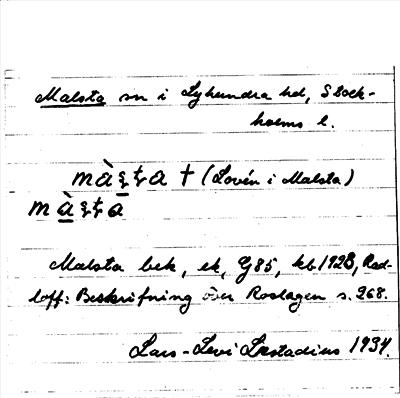 Malsta sn i Lyhundra hd, Stock-
holms l.
màʂʈa † (Lovén i Malsta)
màʂʈa
Malsta bek, ek, G85, kb192B, Rad-
loff: Beskrifning över Roslagen s. 268.
Lars-Levi Læstadius 1934.